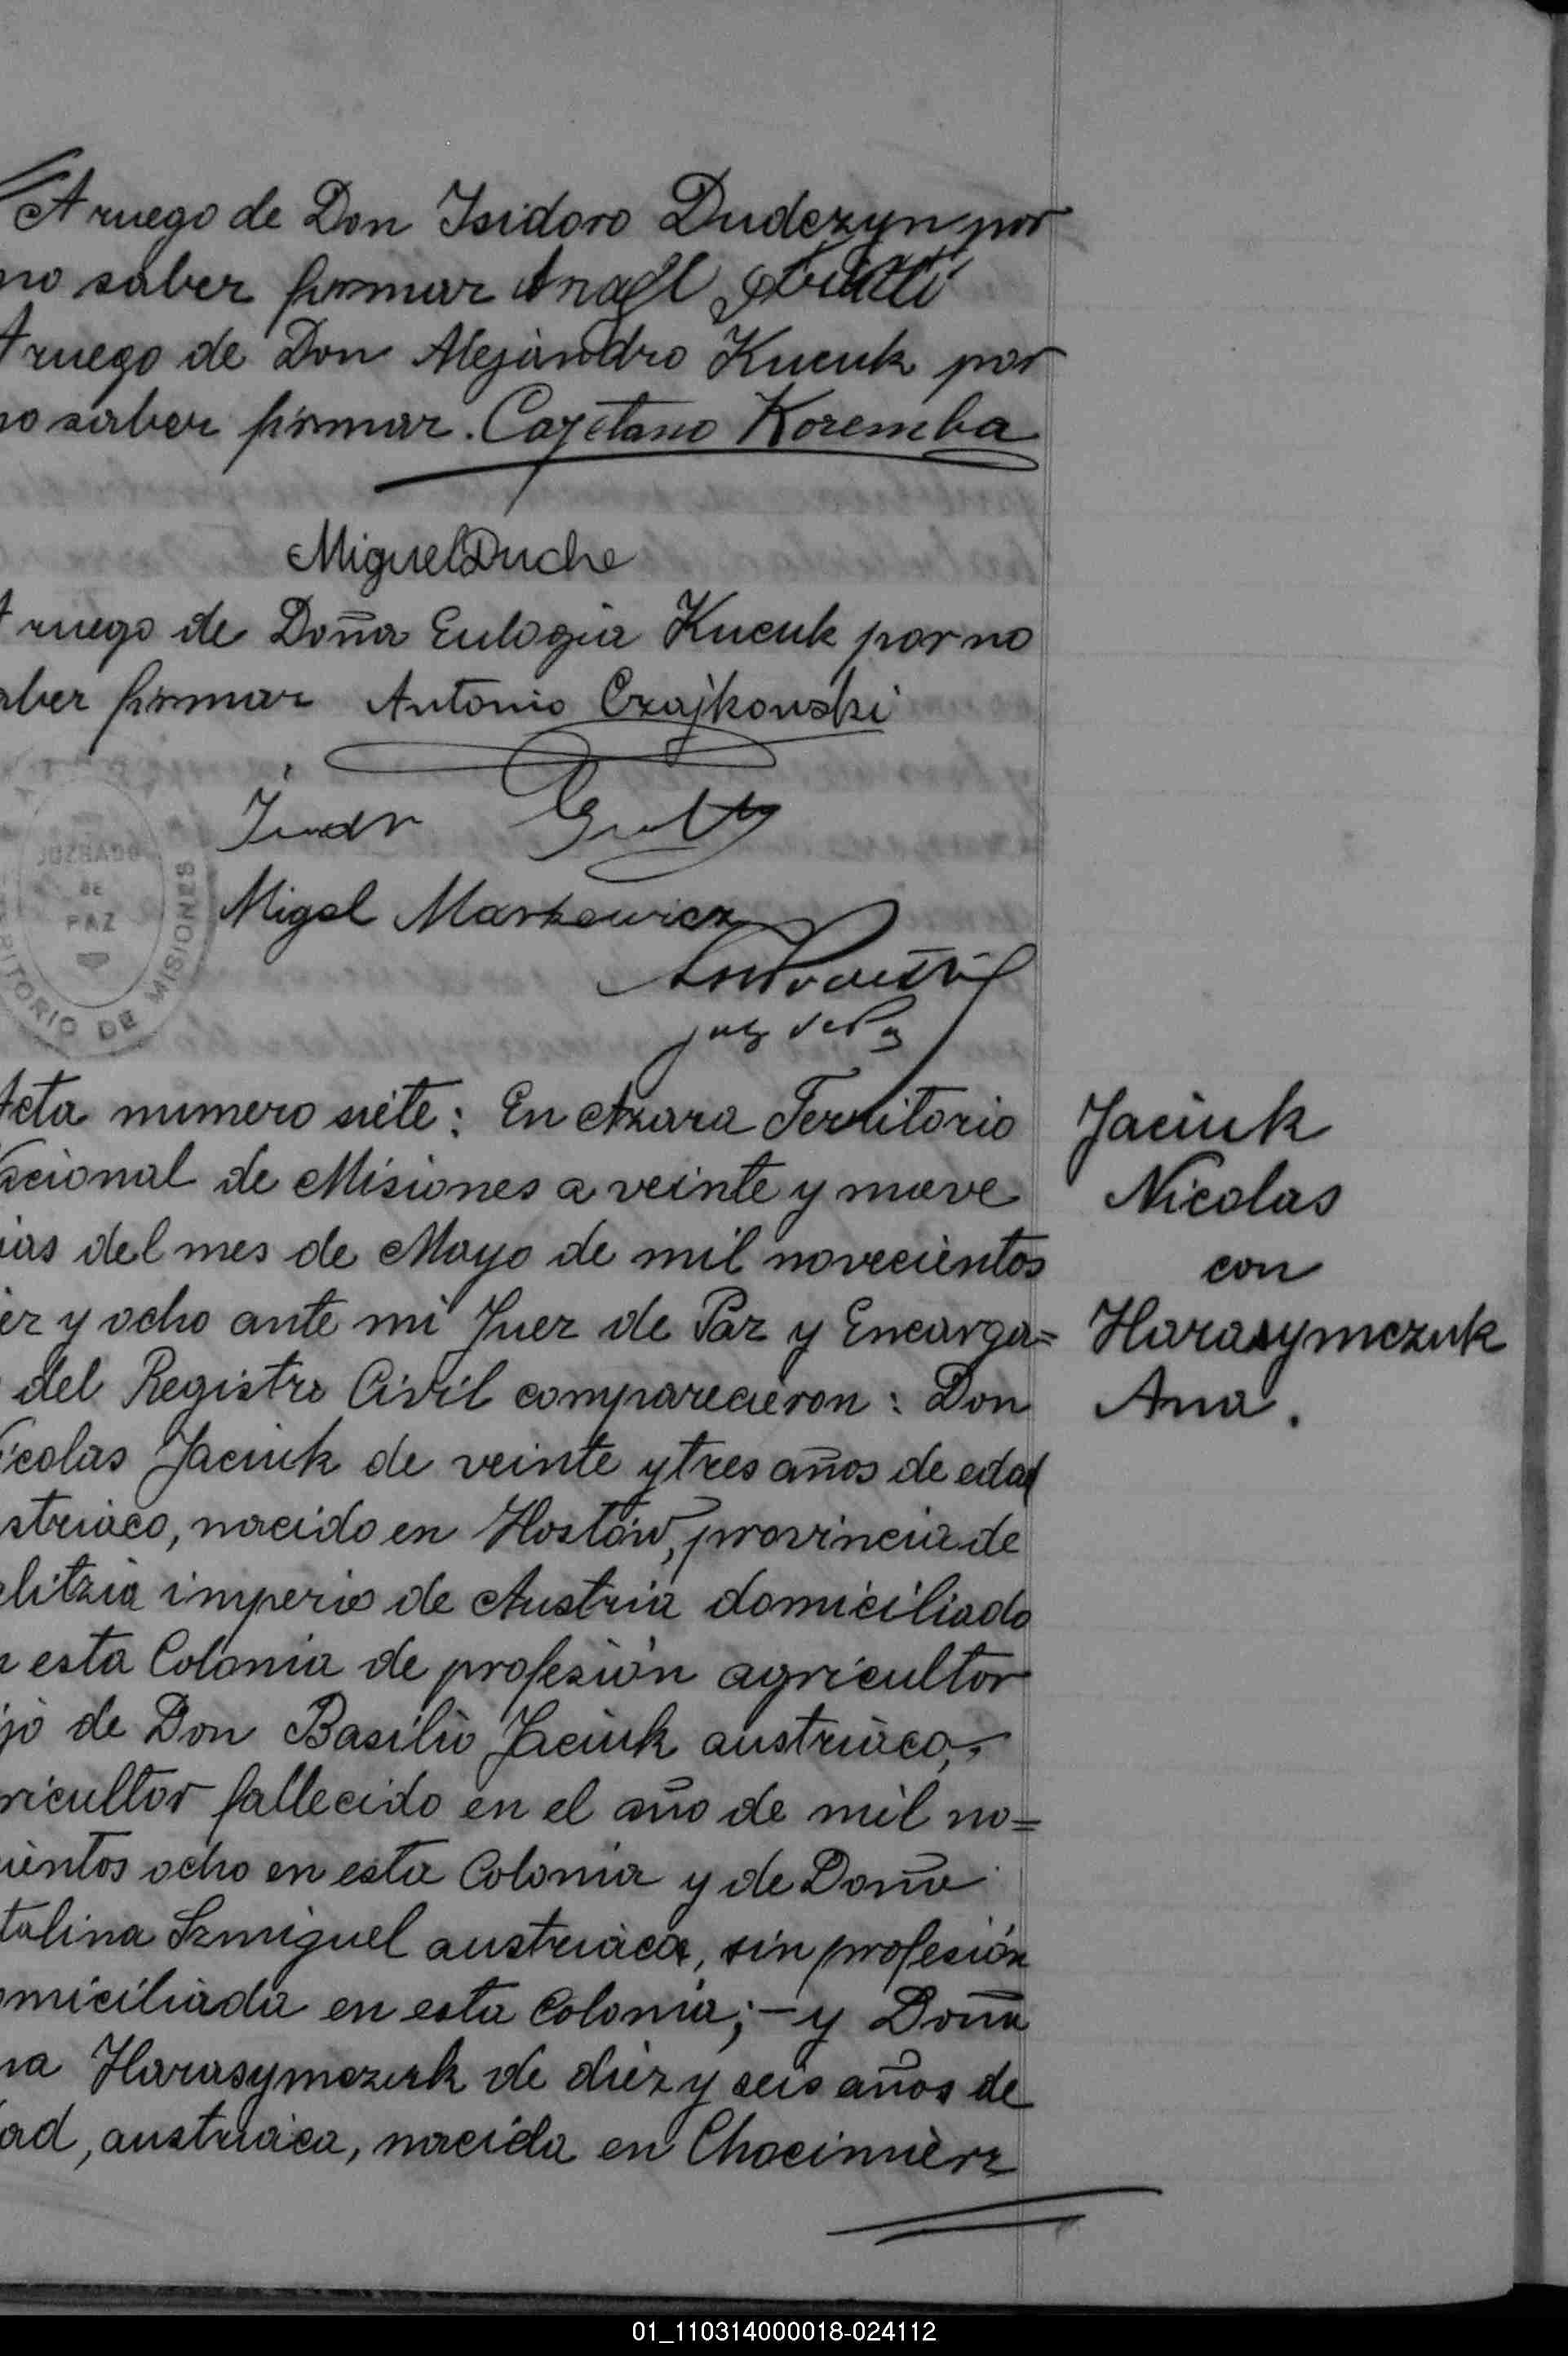 A ruego de Don Isidoro Dudczyn por
no saber firmar
A ruego de Don Alejandro Kucuk por
no saber firmar. Cayetano Koremba
Miguel Duche
ruego de Doña Eulogia Kucuk por no
aber firmar Antonio Czajkowski
JUZGADO
DE
PAZ
RITORIO DE MISIONES
Migel Markowicz
Juez de Paz
Acta numero siete: En Azara Territorio
acional de Misiones a veinte y nueve
ias del mes de Mayo de mil novecientos
ez y ocho ante mi Juez de Paz y Encarga=
del Registro Civil comparecieron: Don
icolas Jaciuk de veinte y tres años de edad
striaco, nacido en Hostów, provincia de
litzia imperio de Austria domiciliado
n esta Colonia de profesión agricultor
ijo de Don Basilio Jaciuk austriaco,
ricultor fallecido en el año de mil no=
cientos ocho en esta Colonia y de Doña
talina Szmiguel austriaca, sin profesión
omiciliada en esta Colonia; - y Doña
na Harasymczuk de diez y seis años de
ad, austriaca, nacida en Chocimierz
Jaciuk
Nicolas
con
Harasymczuk
Ana.
01_110314000018-024112